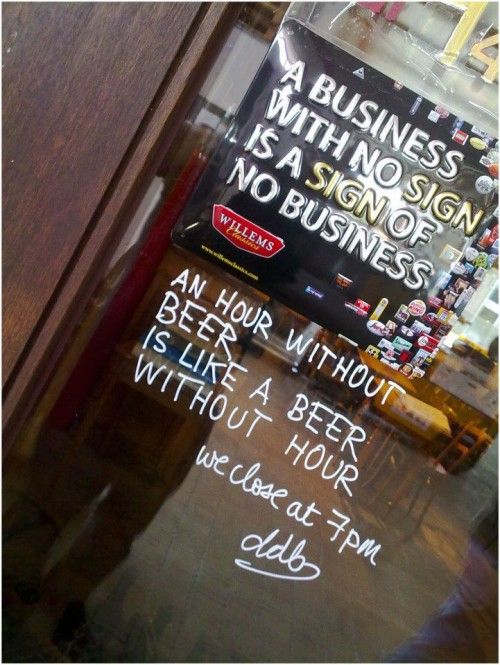 14
A BUSINESS
WITH NO SIGN
IS A SIGN OF
NO BUSINESS
WILLEMS
Classics
www.willemsclassics.com
AN HOUR WITHOUT
BEER
IS LIKE A BEER
WITHOUT HOUR
we close at 7pm
ddb